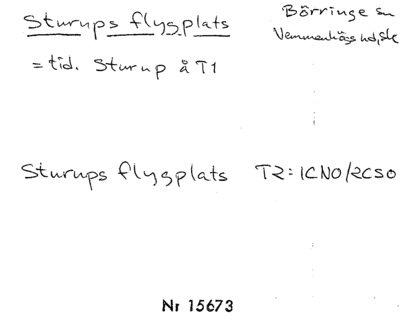 Sturups flygplats
Börringe sn
Vemmenhögs hd, Sk
= tid. Sturup å T1
Sturups flygplats T2: 1CNO/2CSO
Nr 15673